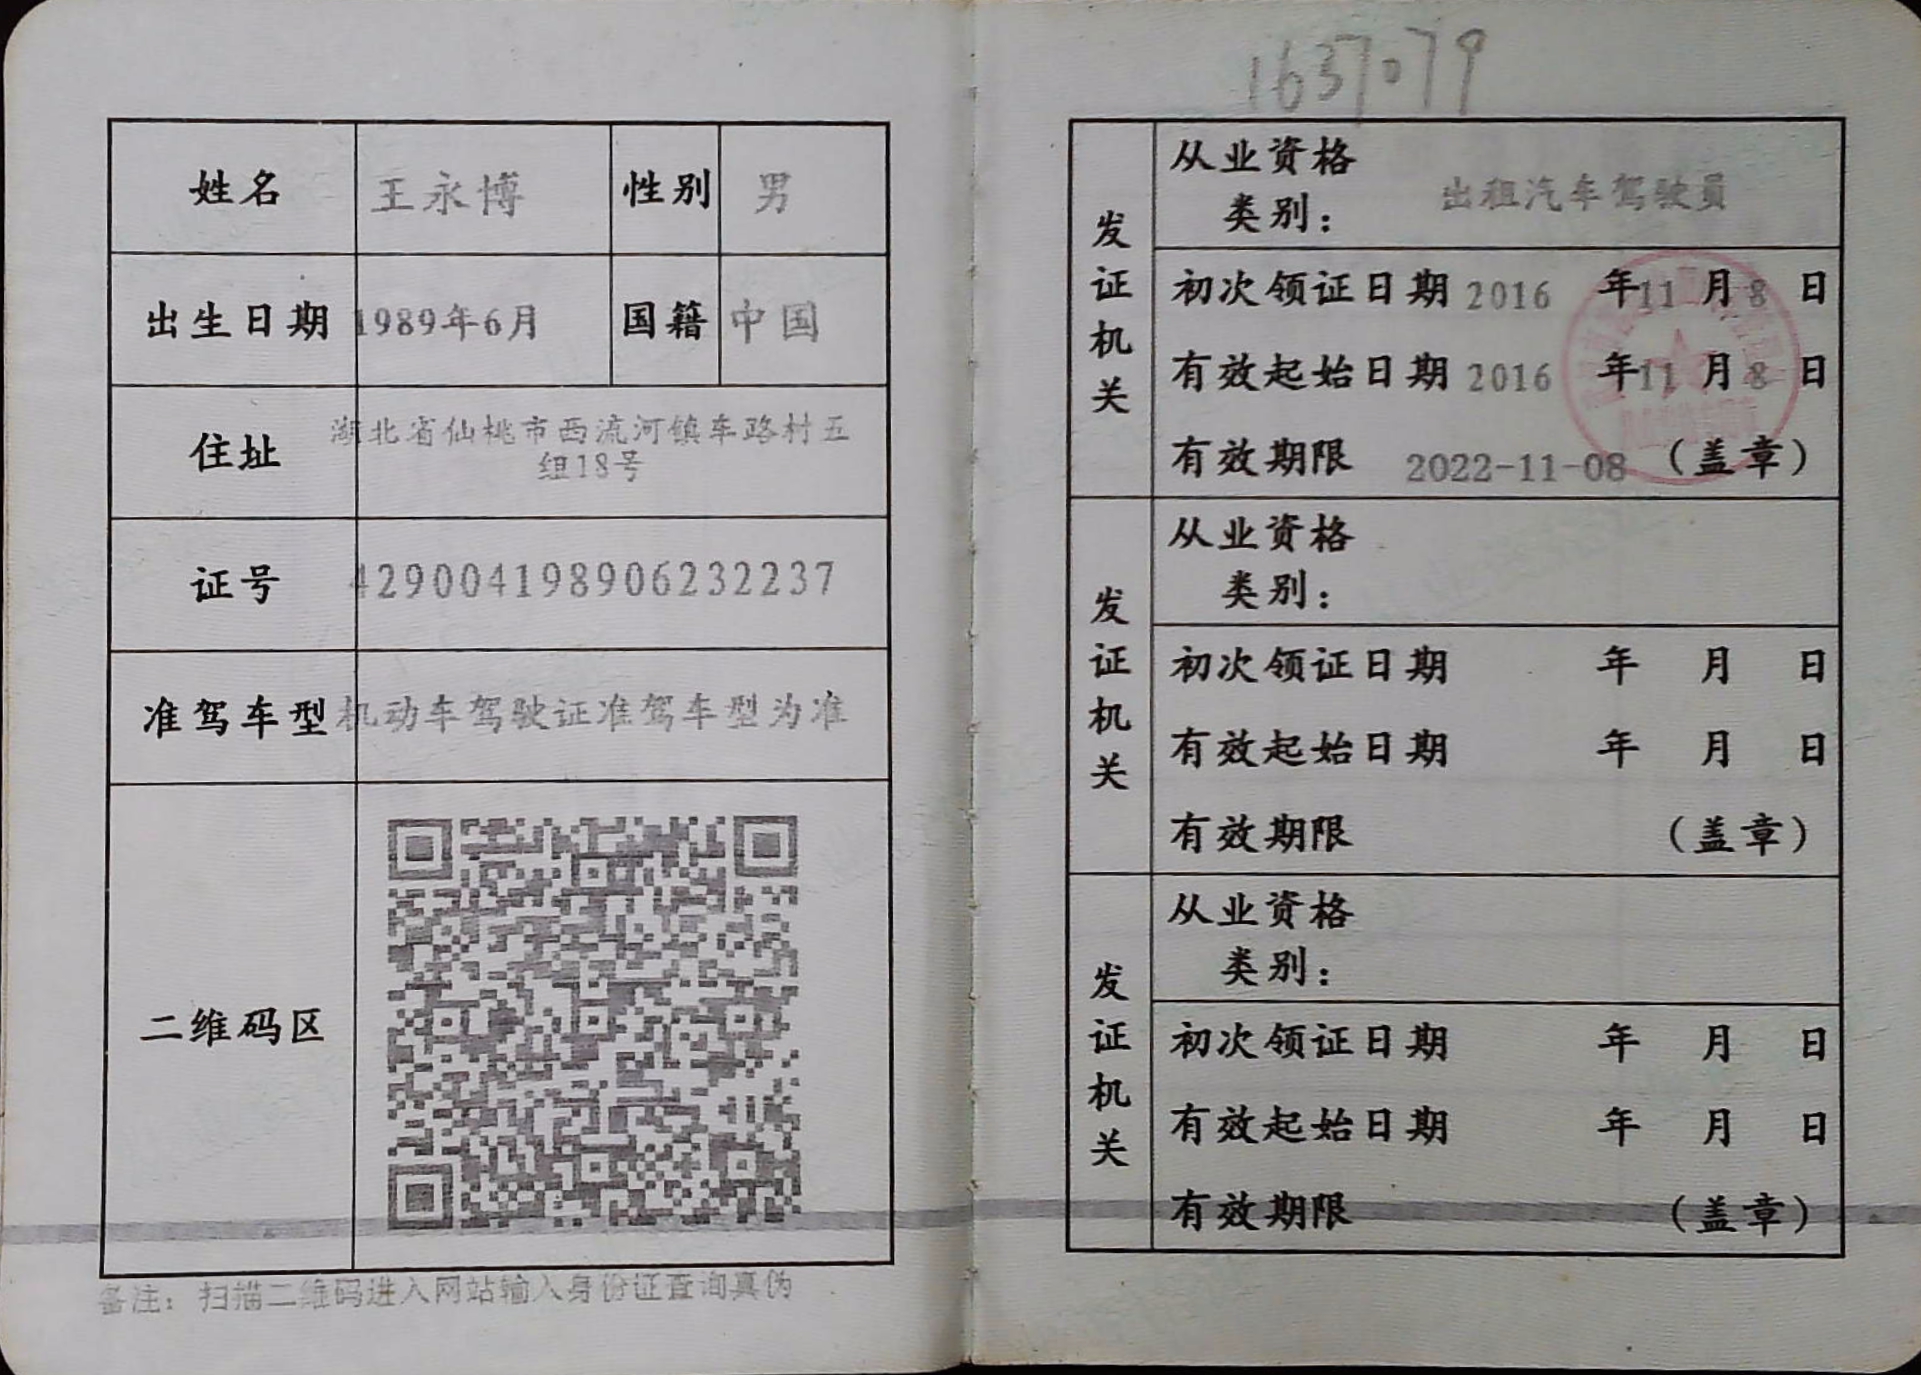 姓名 王永博 性别 男
出生日期 1989年6月 国籍 中国
住址 湖北省仙桃市西流河镇车路村五
组18号
证号 429004198906232237
准驾车型 机动车驾驶证准驾车型为准
二维码区
备注：扫描二维码进入网站输入身份证查询真伪
1637079
发证机关
从业资格
类别： 出租汽车驾驶员
初次领证日期 2016 年11 月 8 日
有效起始日期 2016 年11 月 8 日
有效期限 2022-11-08 （盖章）
发证机关
从业资格
类别：
初次领证日期 年 月 日
有效起始日期 年 月 日
有效期限 （盖章）
发证机关
从业资格
类别：
初次领证日期 年 月 日
有效起始日期 年 月 日
有效期限 （盖章）